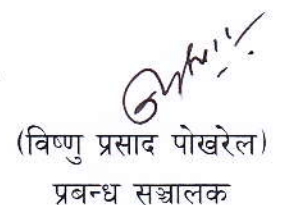 (विष्णु प्रसाद पोखरेल)
प्रबन्ध सञ्चालक